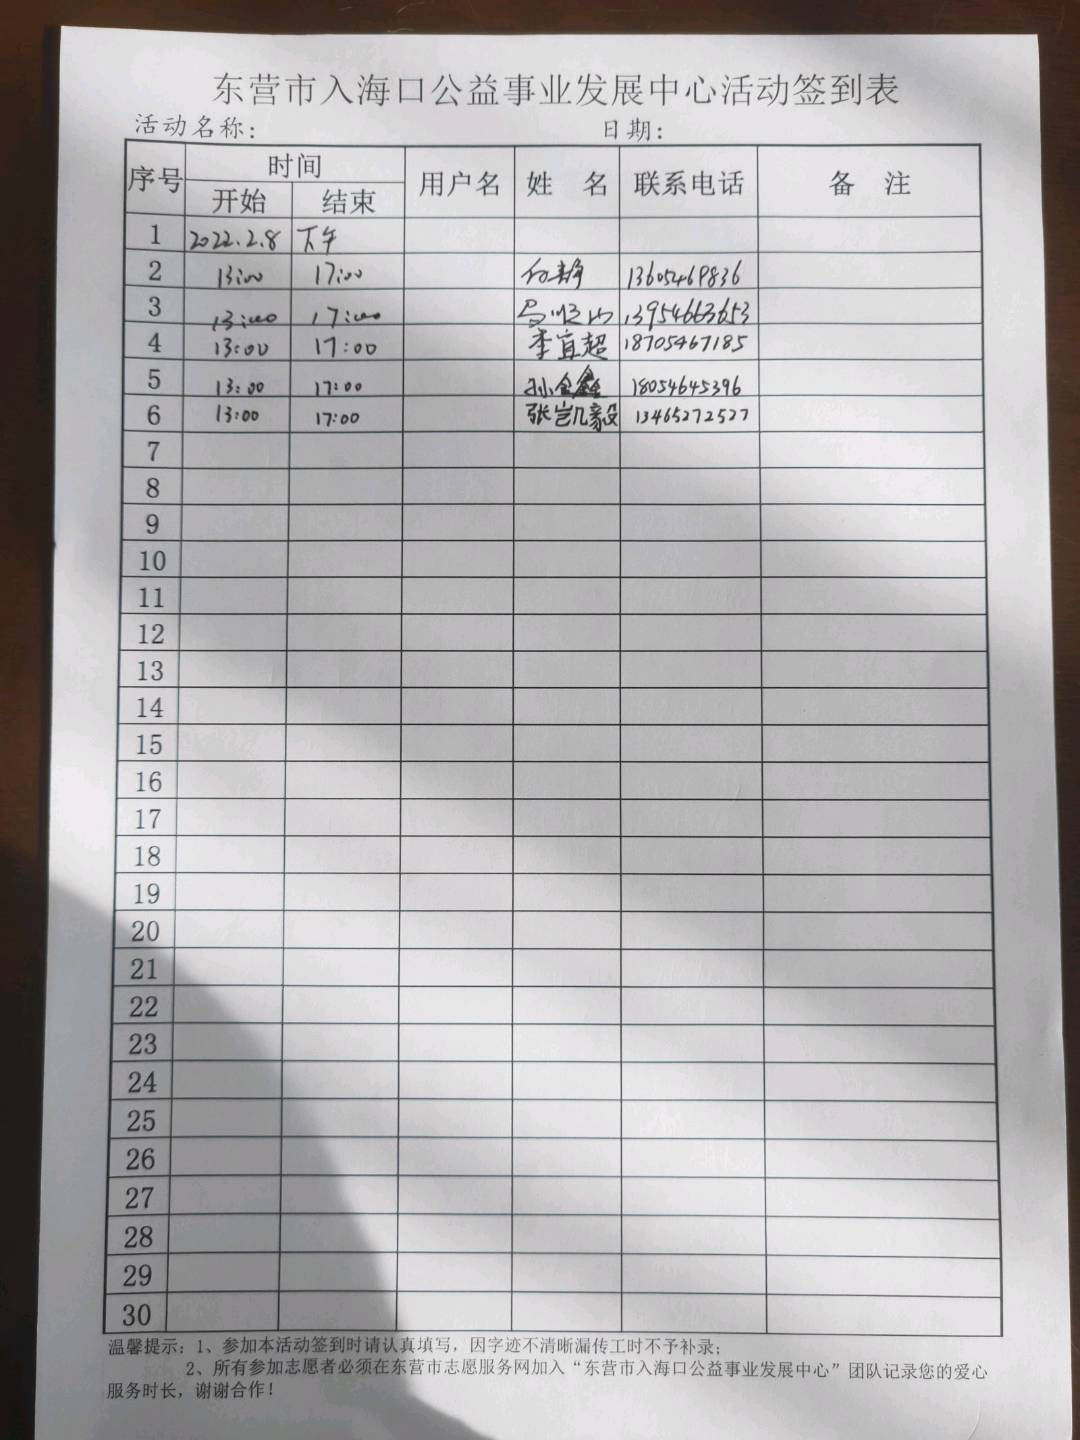 东营市入海口公益事业发展中心活动签到表
活动名称: 日期:
序号 时间 用户名 姓 名 联系电话 备 注
开始 结束
1 2022.2.8 下午
2 13:00 17:00 13605469836
3 13:00 17:00 13954663653
4 13:00 17:00 李宜超 18705467185
5 13:00 17:00 孙金鑫 18054645396
6 13:00 17:00 张岂凡毅 13465272527
7
8
9
10
11
12
13
14
15
16
17
18
19
20
21
22
23
24
25
26
27
28
29
30
温馨提示: 1、参加本活动签到时请认真填写，因字迹不清晰漏传工时不予补录;
2、所有参加志愿者必须在东营市志愿服务网加入“东营市入海口公益事业发展中心”团队记录您的爱心
服务时长，谢谢合作!